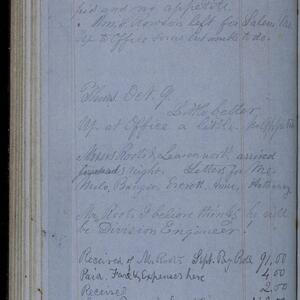 bed and no appetite.
Wm. S. Dowson left for Salem
Up to Office some but unable to do.
Thurs Oct. 9
Little better
Up at Office a little no appetite
Messrs Root & Leavenworth arrived
night. Letters for me
Milo, Bangor, Everett,
Mr Root I believe thinks he will
be Division Engineer!
Received of Mr Root Sept. Pay Roll 91,00
Paid. Fare & Expenses here 4,00
Received 2,00